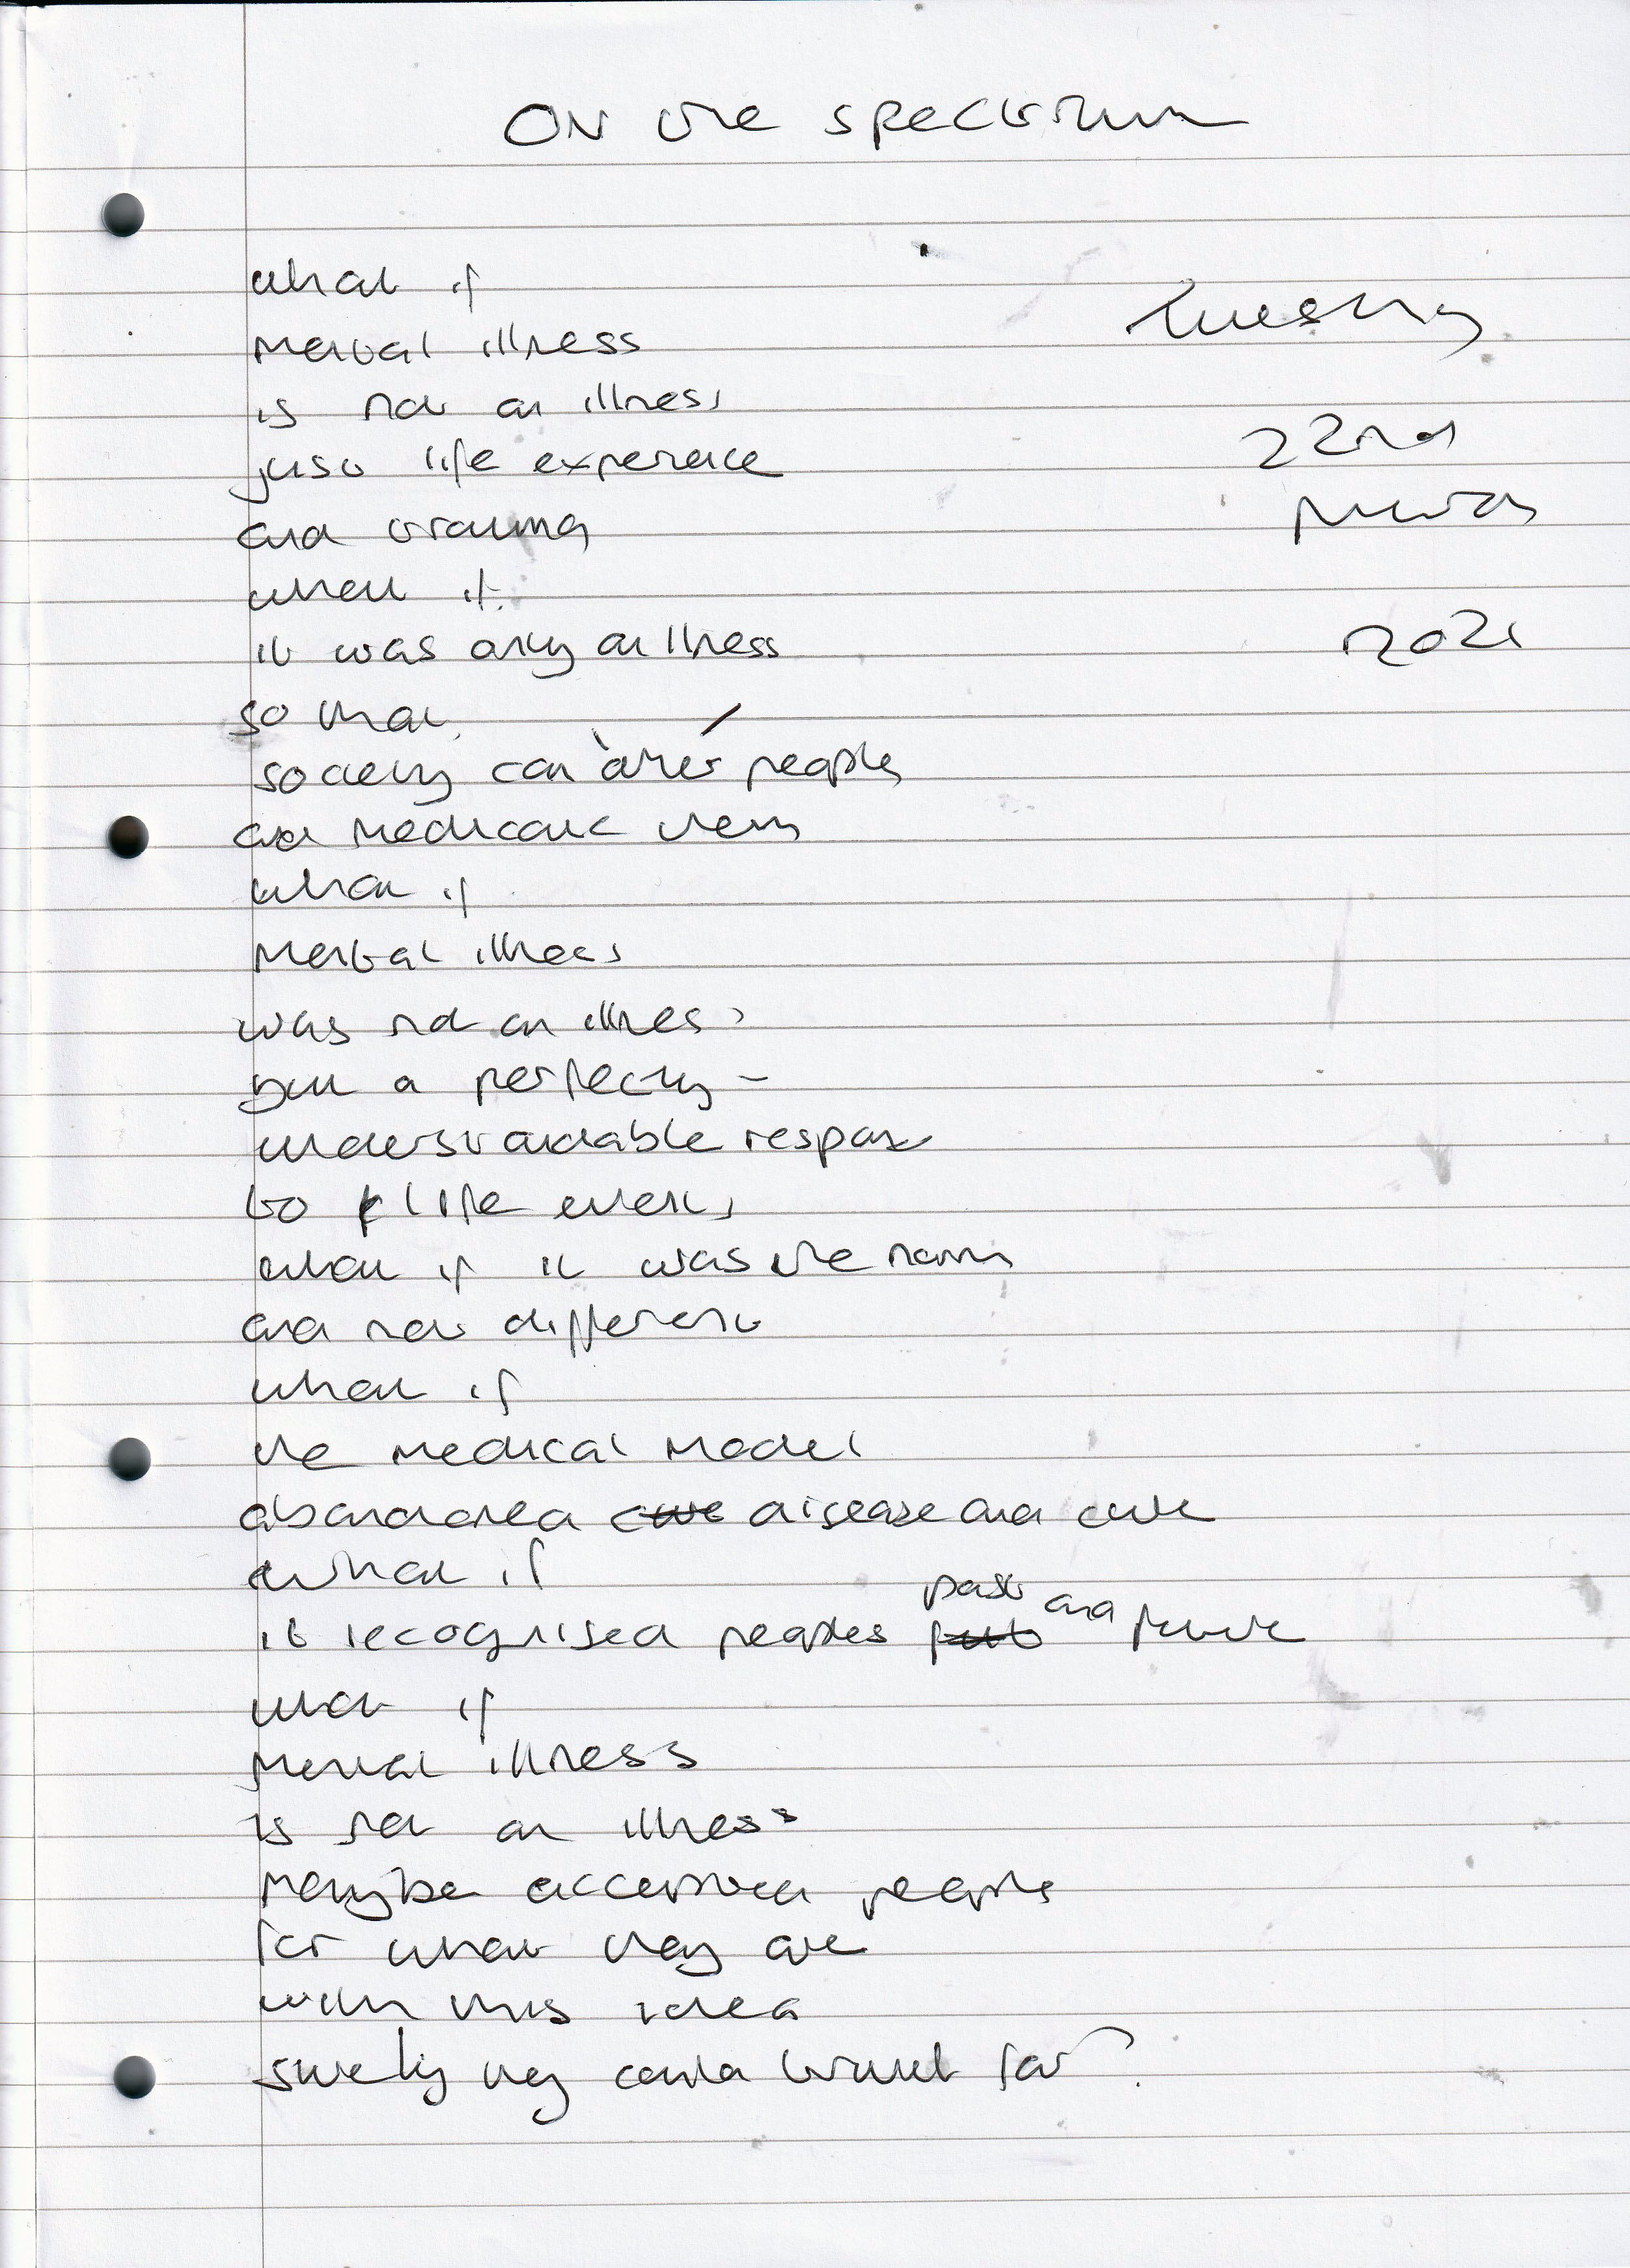 ON the spectrum
what if
mental illness
is not an illness
just life experience
and trauma
what if
it was only an illness
so that
society can 'other' people
and medicate them
what if
mental illness
was not an illness
but a perfectly -
understandable response
to life events
what if it was the norm
and not different
what if
the medical model
abandoned cure disease and cure
what if
it recognised peoples past and future
what if
mental illness
is not an illness
maybe accepted people
for what they are
with this idea
surely they could travel far?
Tuesday
22nd
2021